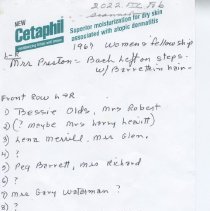 2022.
NEW
Cetaphil
Superior moisturization for dry skin
associated with atopic dermatitis
1967 Women's fellowship
Mrs Preston - Back left on steps
w/ Barrette in hair
Front Row L→R
1) Bessie Olds, Mrs Robert
2) (? maybe Mrs Harry Hewitt)
3) Lena Merrill, Mrs Glen.
4) ?
5) Peg Barrett, Mrs Richard
6) ?
7) Mrs Gary Waterman ?
8) ?